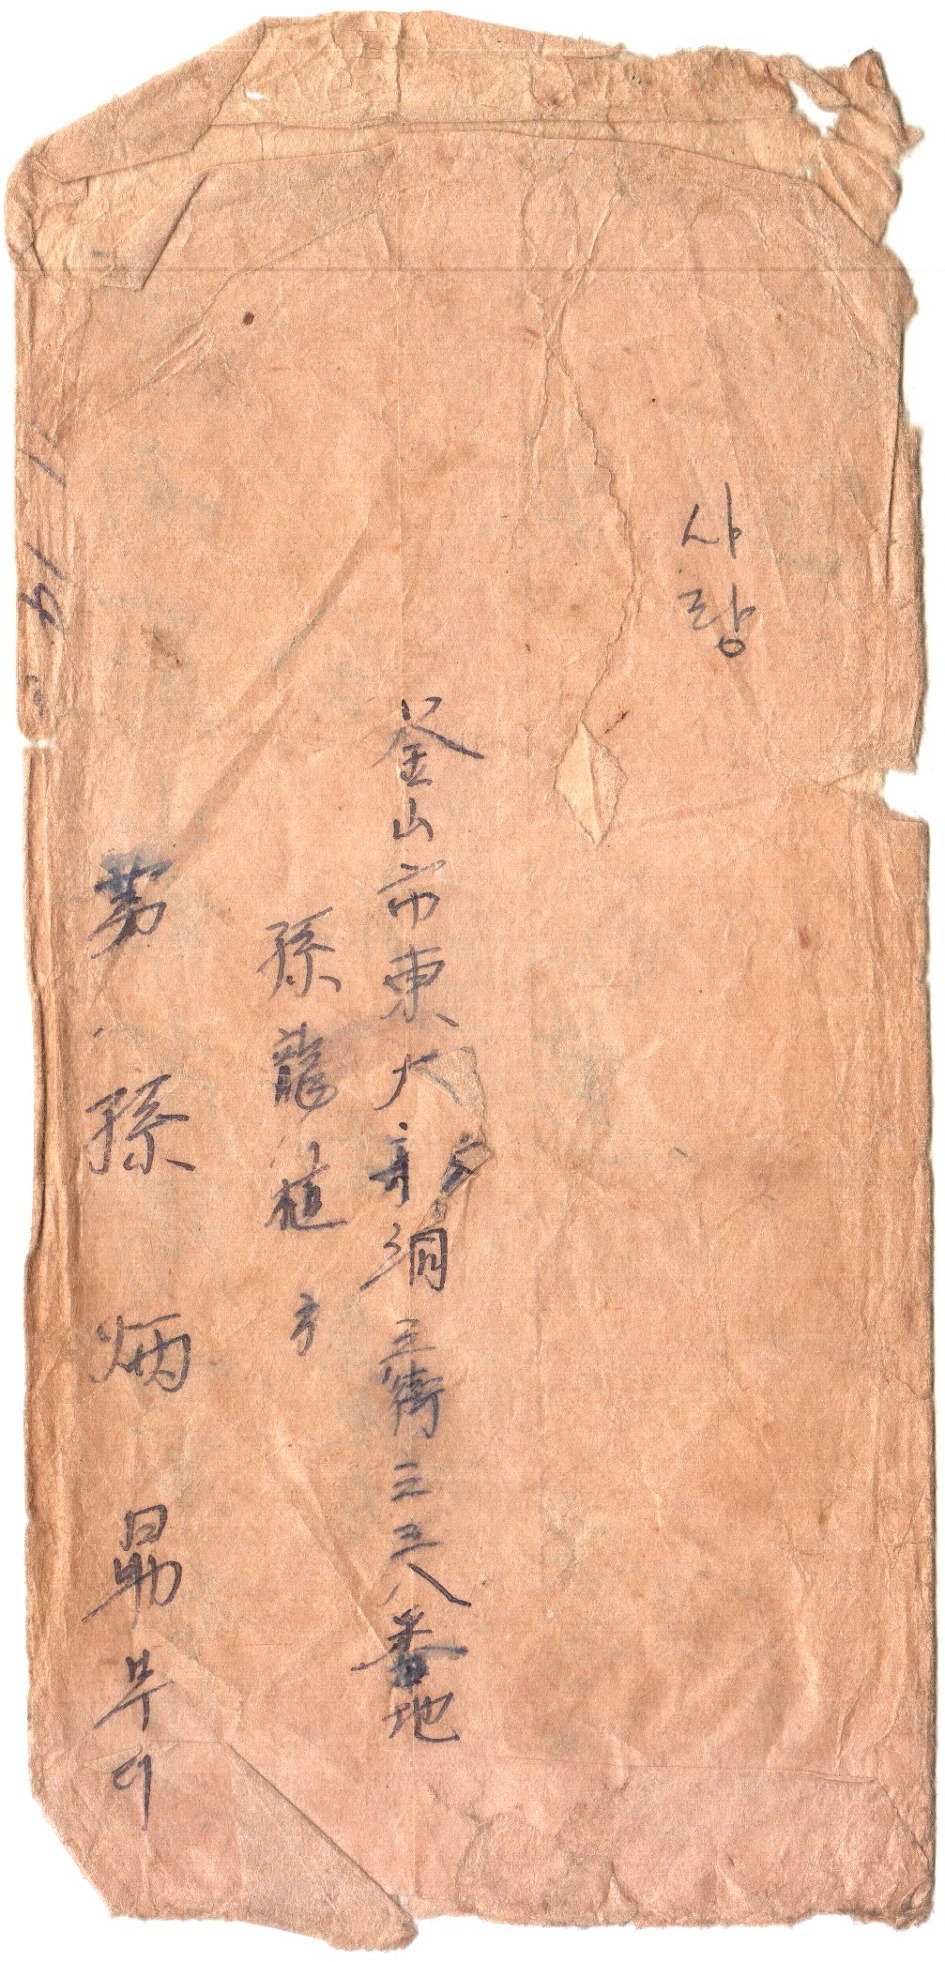 사랑
釜山市東大新洞三街三三八番地
孫龍植 方
孫炳勗 부